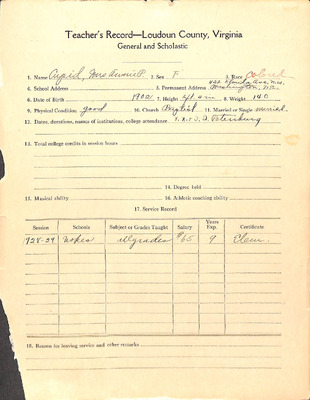 Teacher's Record—Loudoun County, Virginia
General and Scholastic
1. Name Cupid, Mrs. Annie P. 2. Sex F 3. Race Colored
4. School Address 5. Permanent Address Ave., N.E. Washington, D.C.
6. Date of Birth 1902 7. Height 5ft 2in 8. Weight 140
9. Physical Condition good 10. Church Baptist 11. Married or Single married
12. Dates, durations, names of institutions, college attendance V. N. & I. I. Petersburg
13. Total college credits in session hours
14. Degree held
15. Musical ability 16. Athletic coaching ability
17. Service Record
Session Schools Subject or Grades Taught Salary Years Exp. Certificate
1928-29 Nokes all grades $65 9 Elem.
18. Reason for leaving service and other remarks